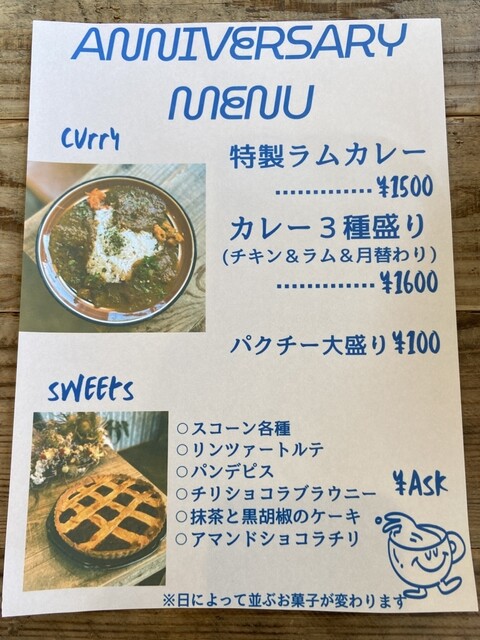 ANNIVERSARY
MENU
curry
特製ラムカレー
·············¥1500
カレー３種盛り
(チキン＆ラム＆月替わり)
·············¥1600
パクチー大盛り¥100
SWEEts
○スコーン各種
○リンツァートルテ
○パンデピス
○チリショコラブラウニー
¥Ask
○抹茶と黒胡椒のケーキ
○アマンドショコラチリ
※日によって並ぶお菓子が変わります